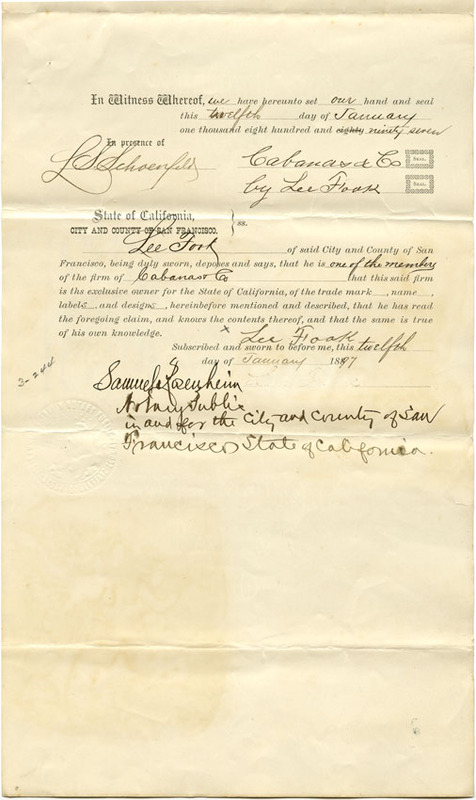 In Witness Whereof, we have hereunto set our hand and seal
this twelfth day of January
one thousand eight hundred and eighty ninety seven
In presence of
L S Schoenfeld
Cabanas & Co SEAL.
by Lee Fook SEAL.
State of California,
CITY AND COUNTY OF SAN FRANCISCO. } ss.
Lee Fook of said City and County of San
Francisco, being duly sworn, deposes and says, that he is one of the members
of the firm of Cabanas & Co that this said firm
is ths exclusive owner for the State of California, of the trade mark , name ,
labels , and designs , hereinbefore mentioned and described, that he has read
the foregoing claim, and knows the contents thereof, and that the same is true
of his own knowledge.
x Lee Fook
Subscribed and sworn to before me, this twelfth
day of January 1897
3-244
Samuel Rosenheim
Notary Public
in and for the City and County of San
Francisco State of California.